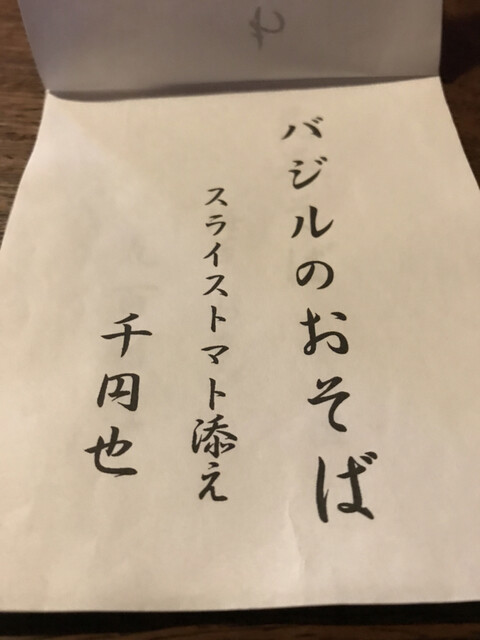 バジルのおそば
スライストマト添え
千円也